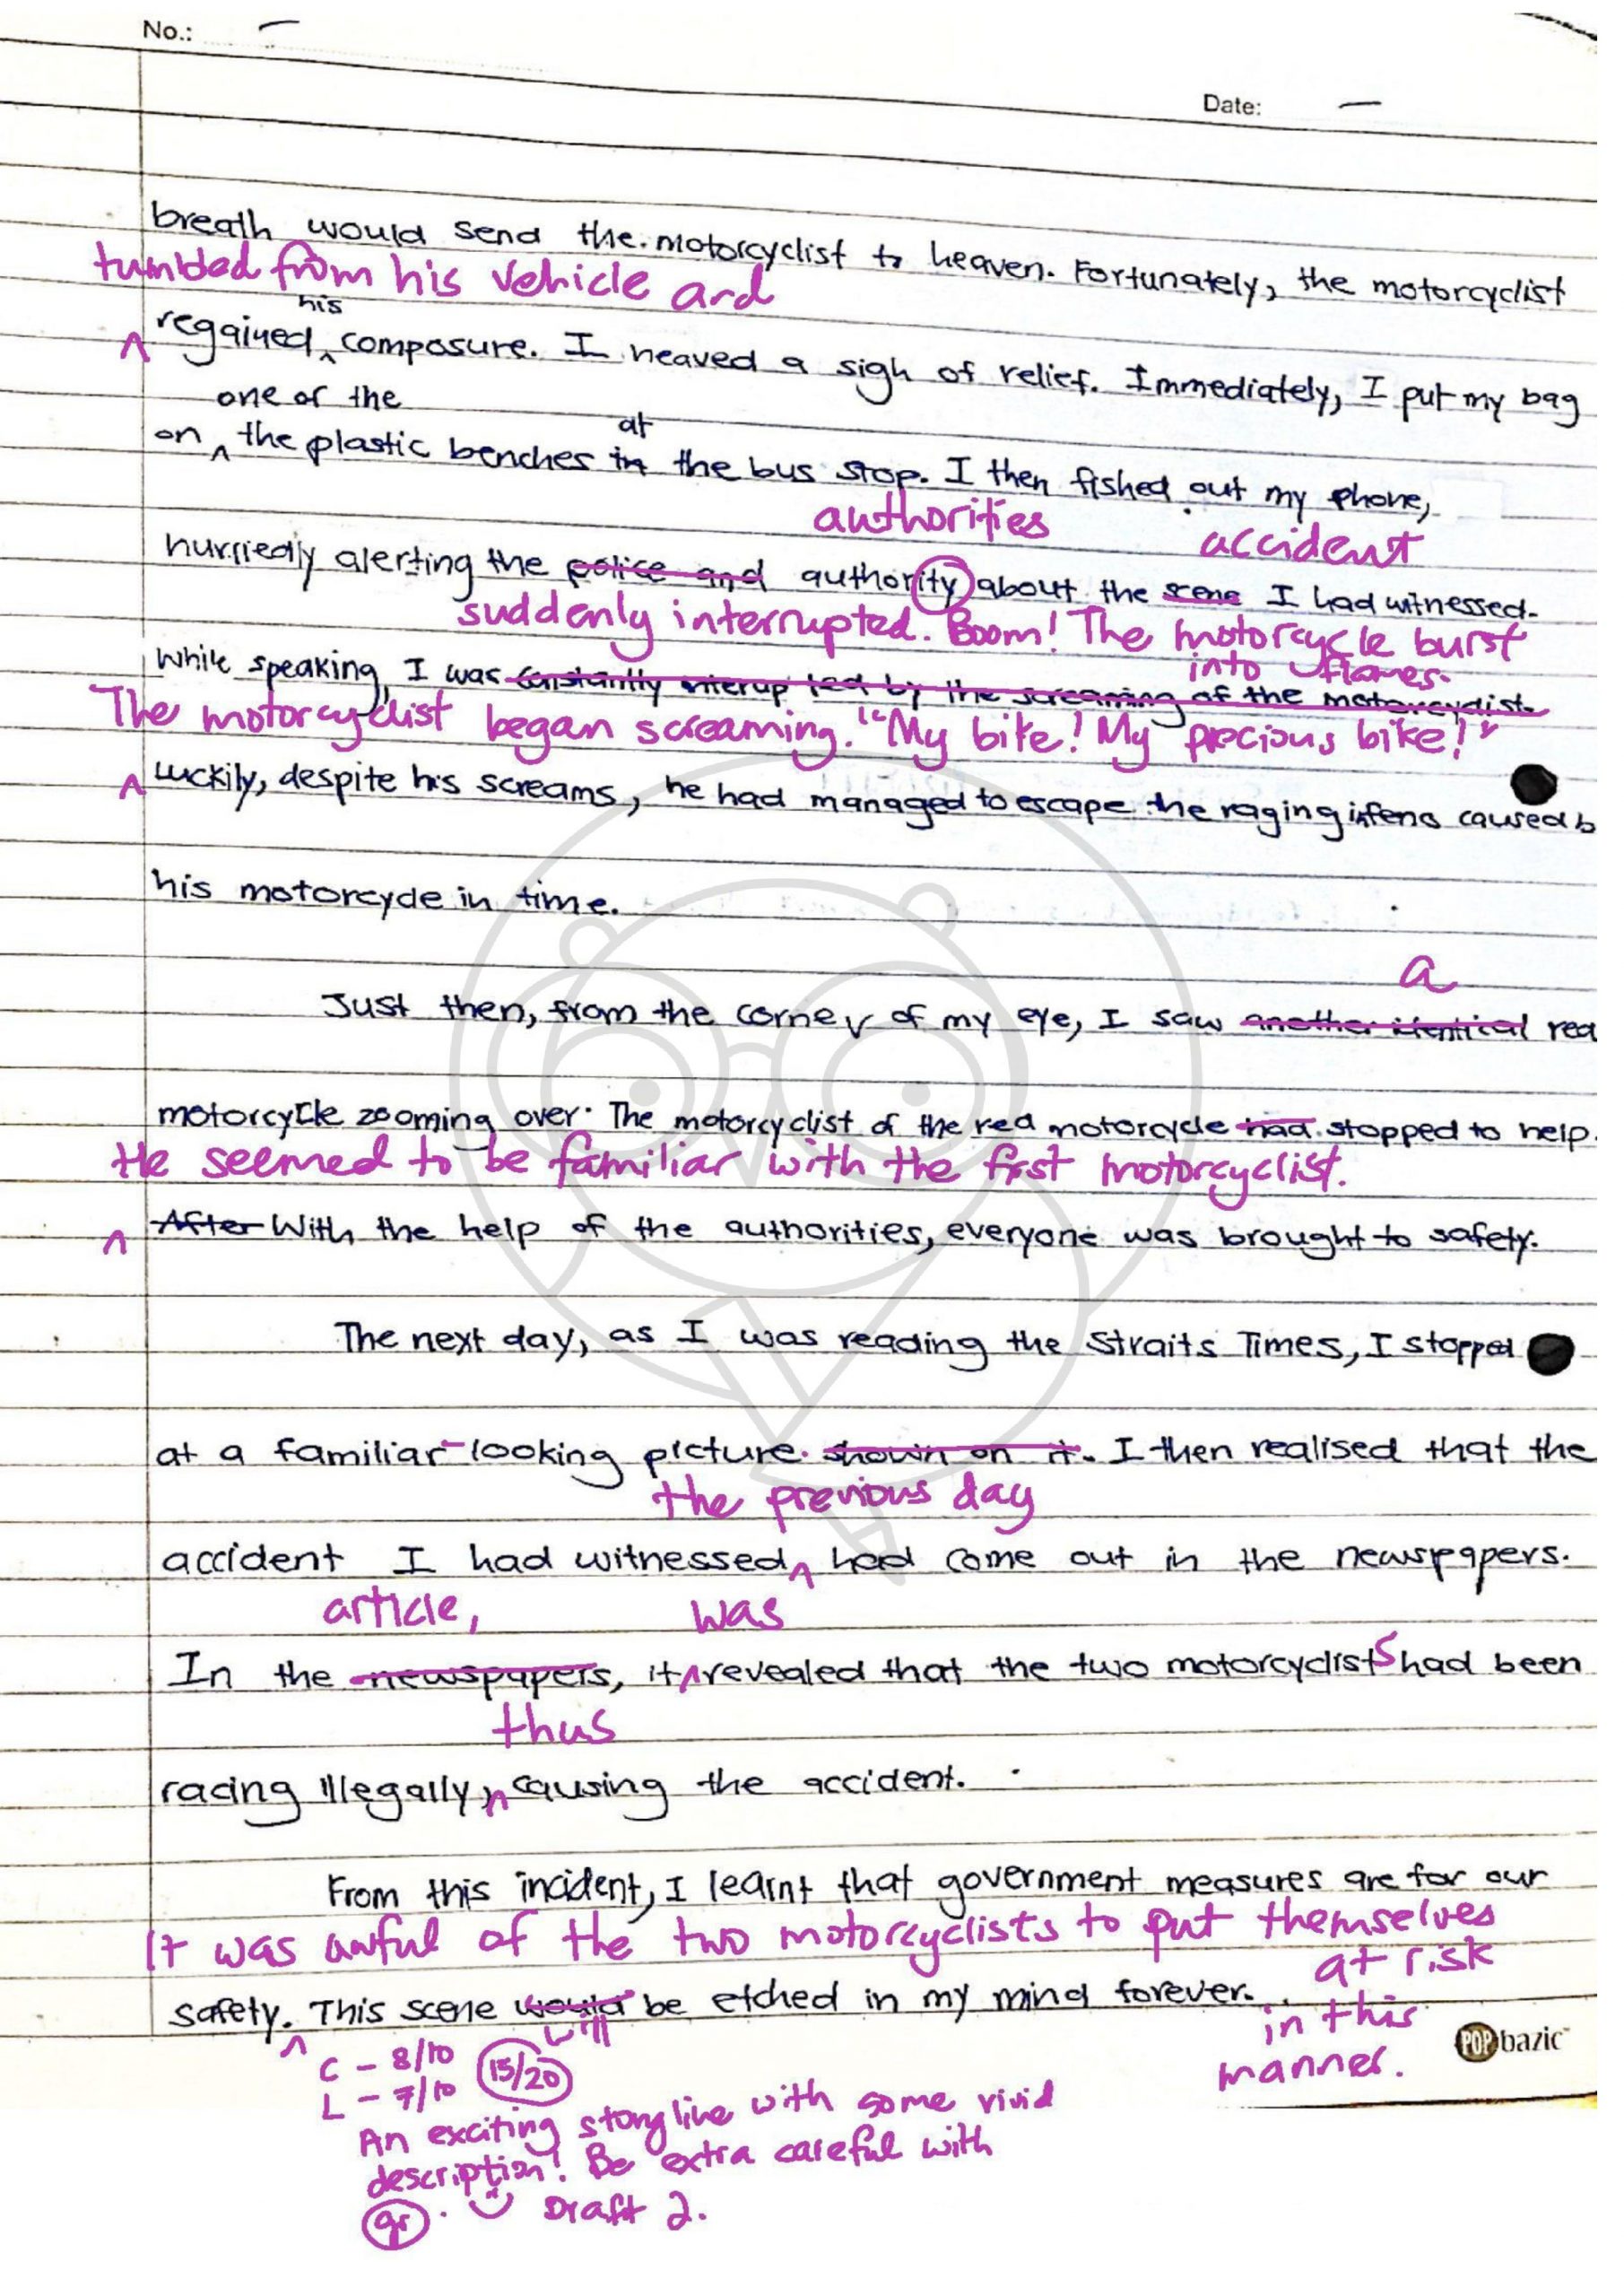 No.: —
Date: —
breath would send the motorcyclist to heaven. Fortunately, the motorcyclist
tumbled from his vehicle and
his
^ regained ^ composure. I heaved a sigh of relief. Immediately, I put my bag
one of the
at
on ^ the plastic benches in the bus stop. I then fished out my phone,
authorities
accident
hurriedly alerting the police and authority about the scene I had witnessed.
suddenly interrupted. Boom! The motorcycle burst
into flames.
While speaking, I was constantly interup ted by the screaming of the motorcyclist.
The motorcyclist began screaming. "My bike! My precious bike!"
^ Luckily, despite his screams, he had managed to escape the raging infeno caused b
his motorcycle in time.
a
Just then, from the corner of my eye, I saw another identical red
motorcycle zooming over. The motorcyclist of the red motorcycle had stopped to help.
He seemed to be familiar with the first motorcyclist.
^ After With the help of the authorities, everyone was brought to safety.
The next day, as I was reading the Straits Times, I stopped
at a familiar-looking picture. shown on it. I then realised that the
the previous day
accident I had witnessed ^ had come out in the newspapers.
article,
was
In the newspapers, it ^ revealed that the two motorcyclists had been
thus
racing illegally, ^ causing the accident.
From this incident, I learnt that government measures are for our
It was awful of the two motorcyclists to put themselves
at risk
safety. ^ This scene would be etched in my mind forever.
in this
will
manner.
POP bazic
C - 8/10
15/20
L - 7/10
An exciting storyline with some vivid
description! Be extra careful with
gr. Draft 2.